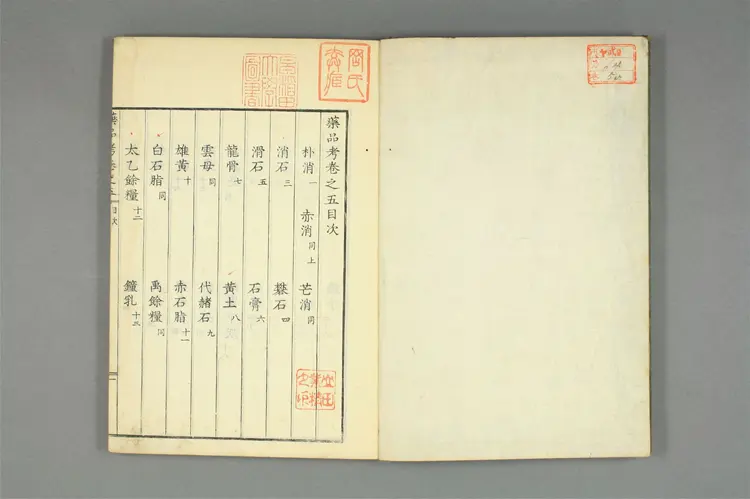 藥品考卷之五目次
朴消一 赤消同上 芒消同
消石三 礬石四
滑石五 石膏六
龍骨七 黄土八
雲母同 代赭石九
雄黄十 赤石脂十一
白石脂同 禹餘糧同
太乙餘糧十二 鐘乳十三
藥品考卷之五 目次 一